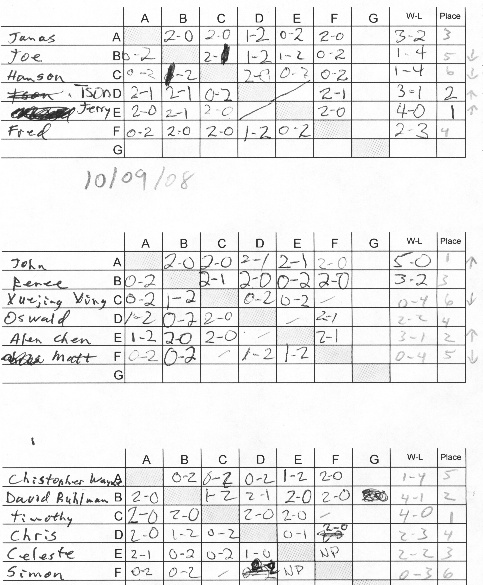 A B C D E F G W-L Place
Janas A 2-0 2-0 1-2 0-2 2-0 3-2 3
Joe B 0-2 2-1 1-2 1-2 0-2 1-4 5 ↓
Hanson C 0-2 1-2 2-0 0-2 0-2 1-4 6 ↓
Tson D 2-1 2-1 0-2 2-1 3-1 2 ↑
Jerry E 2-0 2-1 2-0 2-0 4-0 1 ↑
Fred F 0-2 2-0 2-0 1-2 0-2 2-3 4
G
10/09/08
A B C D E F G W-L Place
John A 2-0 2-0 2-1 2-1 2-0 5-0 1 ↑
Renee B 0-2 2-1 2-0 0-2 2-0 3-2 3
Xuejing Ying C 0-2 1-2 0-2 0-2 - 0-4 6 ↓
Oswald D 1-2 0-2 2-0 - 2-1 2-2 4
Alan Chen E 1-2 2-0 2-0 - 2-1 3-1 2 ↑
Matt F 0-2 0-2 - 1-2 1-2 0-4 5 ↓
G
A B C D E F G W-L Place
Chistopher Wayne A 0-2 0-2 0-2 1-2 2-0 1-4 5
David Ruhlman B 2-0 1-2 2-1 2-0 2-0 4-1 2
Timothy C 2-0 2-0 2-0 2-0 - 4-0 1
Chris D 2-0 1-2 0-2 0-1 2-0 2-3 4
Celeste E 2-1 0-2 0-2 1-0 NP 2-2 3
Simon F 0-2 0-2 - NP 0-3 6